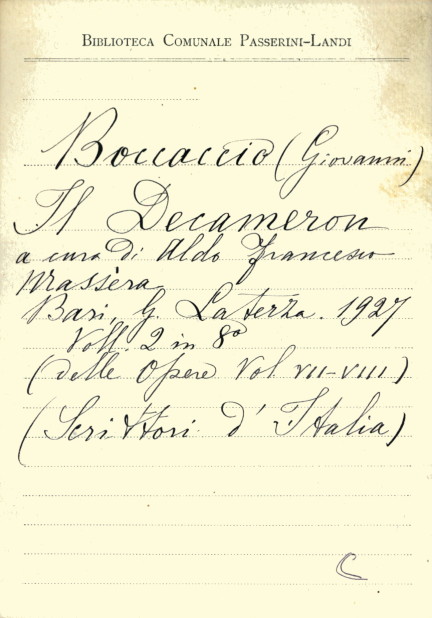 BIBLIOTECA COMUNALE PASSERINI-LANDI
Boccaccio (Giovanni)
Il Decameron
a cura di Aldo Francesco
Massèra
Bari, G. Laterza. 1927
Voll. 2 in 8º
(delle Opere Vol VII-VIII)
(Scrittori d'Italia)
C